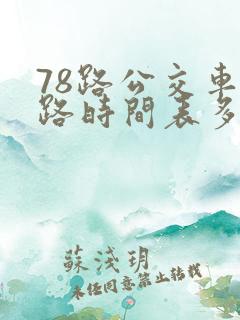 78路公交車
路時間表多
蘇淺玥
未經同意禁止轉載